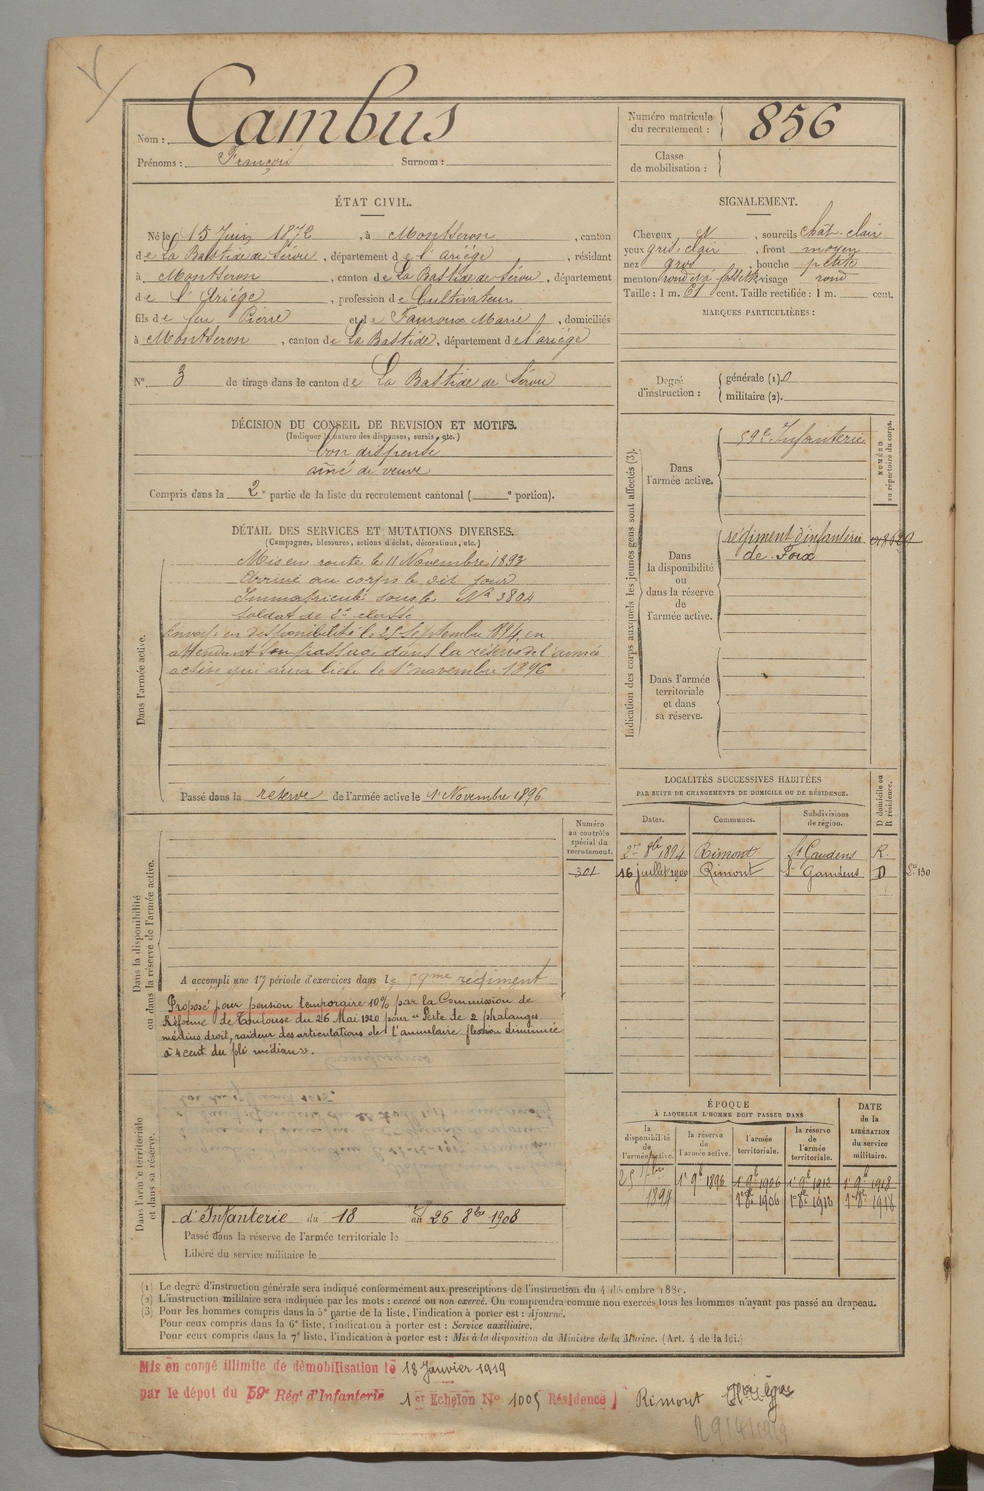 Nom : Cambus
Prénoms : François Surnom :
Numéro matricule du recrutement : 856
Classe de mobilisation :
ÉTAT CIVIL.
Né le 15 Juin 1872, à Montseron, canton
de La Bastide de Sérou, département de l'Ariége, résidant
à Montseron, canton de La Bastide de Sérou, département
de l'Ariége, profession de Cultivateur
fils de feu Pierre et de Fauroux Marie, domiciliés
à Montseron, canton de La Bastide, département de l'ariége
N° 3 de tirage dans le canton de La Bastide de Sérou
SIGNALEMENT.
Cheveux, sourcils chat. clair
yeux gris. clair, front moyen
nez gros, bouche petite
menton rond, visage rond
Taille : 1 m. 61 cent. Taille rectifiée : 1 m. cent.
MARQUES PARTICULIÈRES :
Degré d'instruction : générale (1). 0
militaire (2).
DÉCISION DU CONSEIL DE REVISION ET MOTIFS.
(Indiquer la nature des dispenses, sursis, etc.)
bon dispensé
ainé de veuve
Compris dans la 2e partie de la liste du recrutement cantonal ( e portion).
DÉTAIL DES SERVICES ET MUTATIONS DIVERSES.
(Campagnes, blessures, actions d'éclat, décorations, etc.)
Dans l'armée active.
Mis en route le 11 Novembre 1893
Arrivé au corps le dit jour
Immatriculé sous le N° 3804
Soldat de 2e classe
Envoyé en disponibilité le 25 Septembre 1894, en
attendant son passage dans la réserve de l'armée
active qui aura lieu le 1er novembre 1896
Passé dans la réserve de l'armée active le 1er Novembre 1896
Indication des corps auxquels les jeunes gens sont affectés (3).
NUMÉRO au répertoire du corps.
Dans l'armée active.
59e Infanterie
Dans la disponibilité ou dans la réserve de l'armée active.
régiment d'infanterie
de Foix
Dans l'armée territoriale et dans sa réserve.
LOCALITÉS SUCCESSIVES HABITÉES
PAR SUITE DE CHANGEMENTS DE DOMICILE OU DE RÉSIDENCE.
Dates. Communes. Subdivisions de région. D domicile ou R résidence.
2 8bre 1894 Rimont St Gaudens R.
16 juillet 1900 Rimont St Gaudens D
Numéro au contrôle spécial du recrutement.
301
Dans la disponibilité ou dans la réserve de l'armée active.
A accompli une 1re période d'exercices dans le 59me régiment
Proposé pour pension temporaire 10% par la Commission de
Réforme de Toulouse du 26 Mai 1920 pour "Perte de 2 phalanges
médius droit, raideur des articulations de l'annulaire flexion diminuée
à 4 cent. du pli médian".
Dans l'armée territoriale et dans sa réserve.
d'Infanterie du 18 au 26 8bre 1908
Passé dans la réserve de l'armée territoriale le
Libéré du service militaire le
ÉPOQUE
À LAQUELLE L'HOMME DOIT PASSER DANS
DATE de la LIBÉRATION du service militaire.
la disponibilité de l'armée active. la réserve de l'armée active. l'armée territoriale. la réserve de l'armée territoriale.
25 7bre 1894 1er 9b 1896 1er 9b 1906 1er 9b 1912 1er 9b 1918
1er 8b 1906 1er 8b 1918
(1) Le degré d'instruction générale sera indiqué conformément aux prescriptions de l'instruction du 4 décembre 1889.
(2) L'instruction militaire sera indiquée par les mots : exercé ou non exercé. On comprendra comme non exercés tous les hommes n'ayant pas passé au drapeau.
(3) Pour les hommes compris dans la 5e partie de la liste, l'indication à porter est : Ajourné.
Pour ceux compris dans la 6e liste, l'indication à porter est : Service auxiliaire.
Pour ceux compris dans la 7e liste, l'indication à porter est : Mis à la disposition du Ministre de la Marine. (Art. 4 de la loi.)
Mis en congé illimité de démobilisation le 18 Janvier 1919
par le dépot du 59e Régt d'Infanterie 1er Echelon N° 1005 Résidence Rimont